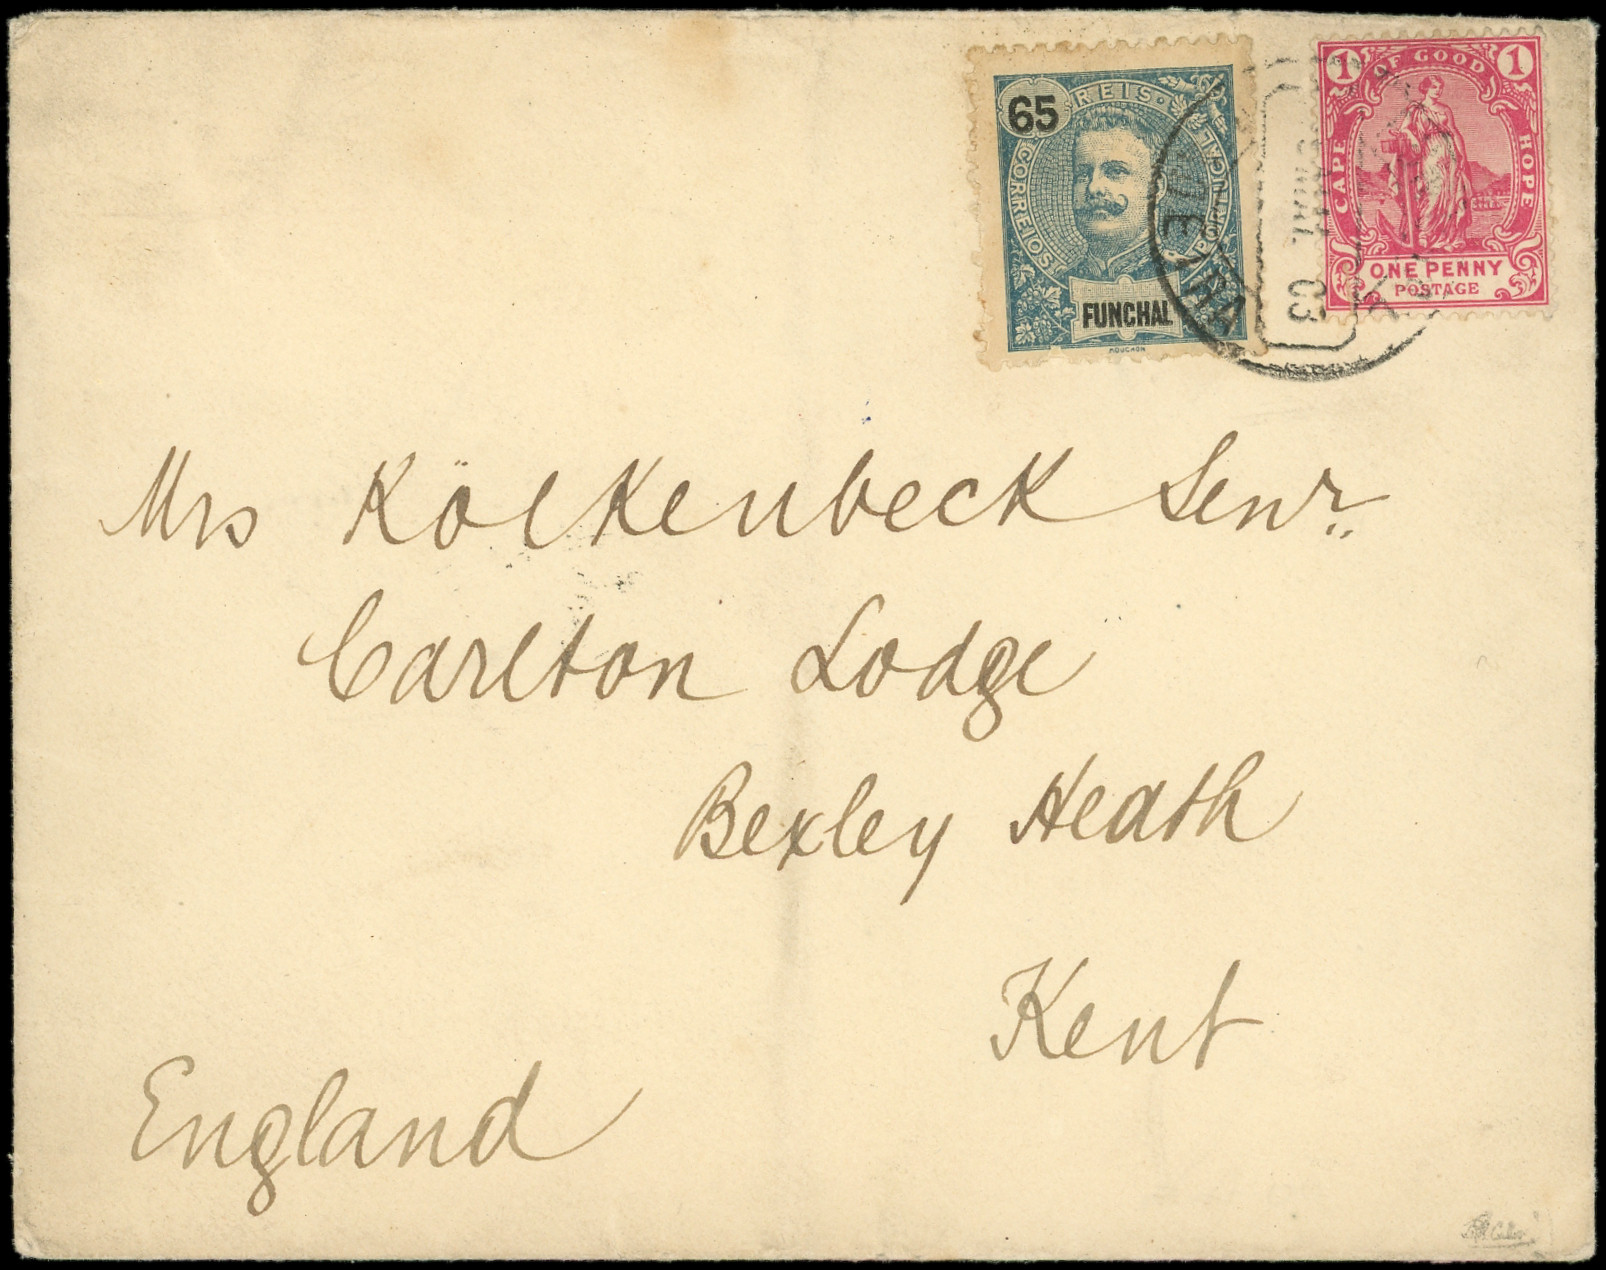 65
REIS
CORREIOS
PORTUGAL
FUNCHAL
MOUCHON
1 OF GOOD 1
CAPE HOPE
ONE PENNY
POSTAGE
03
Mrs Kölkenbeck Senr.
Carlton Lodge
Bexley Heath
Kent
England